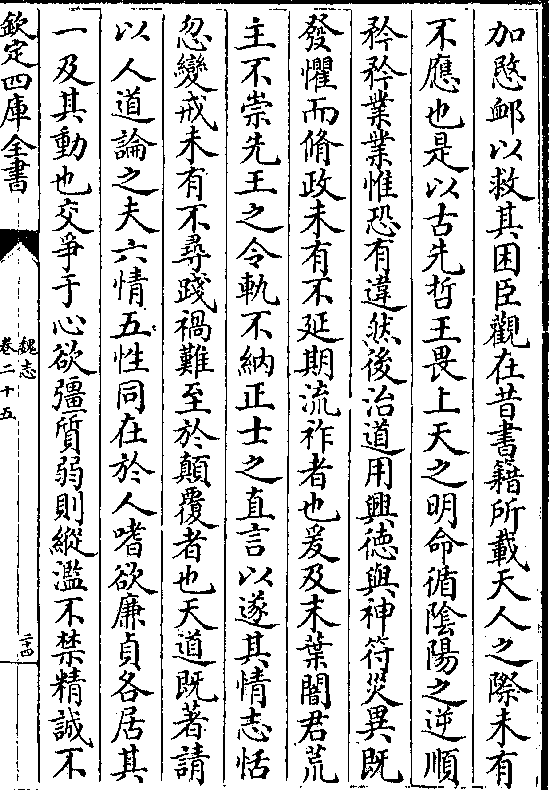 加愍邮以救其困臣觀在昔書籍所載天人之際未有
不應也是以古先哲王畏上天之明命循陰陽之逆順
矜矜業業惟恐有違然後治道用興德與神符災異既
發懼而脩政未有不延期流祚者也爰及末葉闇君荒
主不崇先王之令軌不納正士之直言以遂其情志恬
忽變戒未有不尋踐禍難至於顛覆者也天道既著請
以人道論之夫六情五性同在於人嗜欲廉貞各居其
一及其動也交爭于心欲彊質弱則縱濫不禁精誠不
欽定四庫全書
魏志
卷二十五
二十四